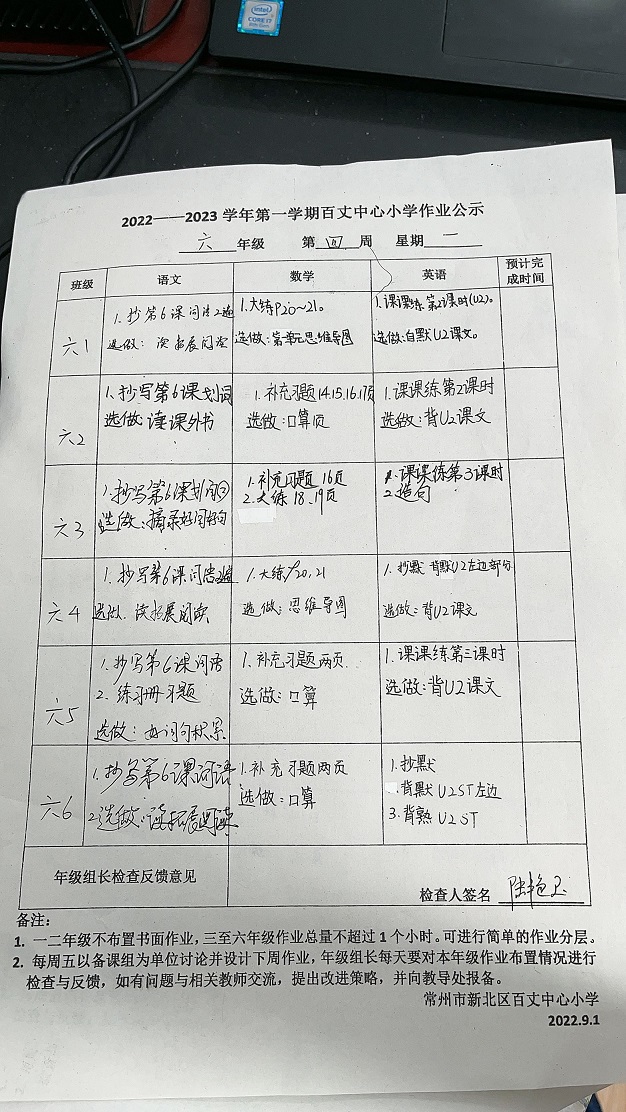 intel
CORE i7
2022——2023 学年第一学期百丈中心小学作业公示
六 年级 第 四 周 星期 一
班级 语文 数学 英语 预计完成时间
六1
1. 抄第6课词语2遍
选做：读拓展阅读
1.大练P20~21。
选做：第一单元思维导图
1.课课练第2课时(U2)。
选做:自默U2课文。
六2
1.抄写第6课划词
选做:读课外书
1.补充习题14.15.16.17页
选做:口算1页
1.课课练第2课时
选做:背U2课文
六3
1.抄写第6课划词
选做:摘录好词好句
1.补充习题 16页
2.大练18、19页
1.课课练第3课时
2.造句
六4
1.抄写第6课词语2遍
选做.读拓展阅读
1.大练P20,21
选做:思维导图
1.抄默 背默U2左边部分
选做:背U2课文
六5
1.抄写第6课词语
2.练习册习题
选做:好词句积累
1.补充习题两页.
选做:口算
1.课课练第三课时
选做:背U2课文
六6
1.抄写第6课词语
2.选做:读拓展阅读
1.补充习题两页
选做:口算
1.抄默
背默U2ST左边
3.背熟U2ST
年级组长检查反馈意见
检查人签名
备注：
1. 一二年级不布置书面作业，三至六年级作业总量不超过 1 个小时。可进行简单的作业分层。
2. 每周五以备课组为单位讨论并设计下周作业，年级组长每天要对本年级作业布置情况进行
检查与反馈，如有问题与相关教师交流，提出改进策略，并向教导处报备。
常州市新北区百丈中心小学
2022.9.1